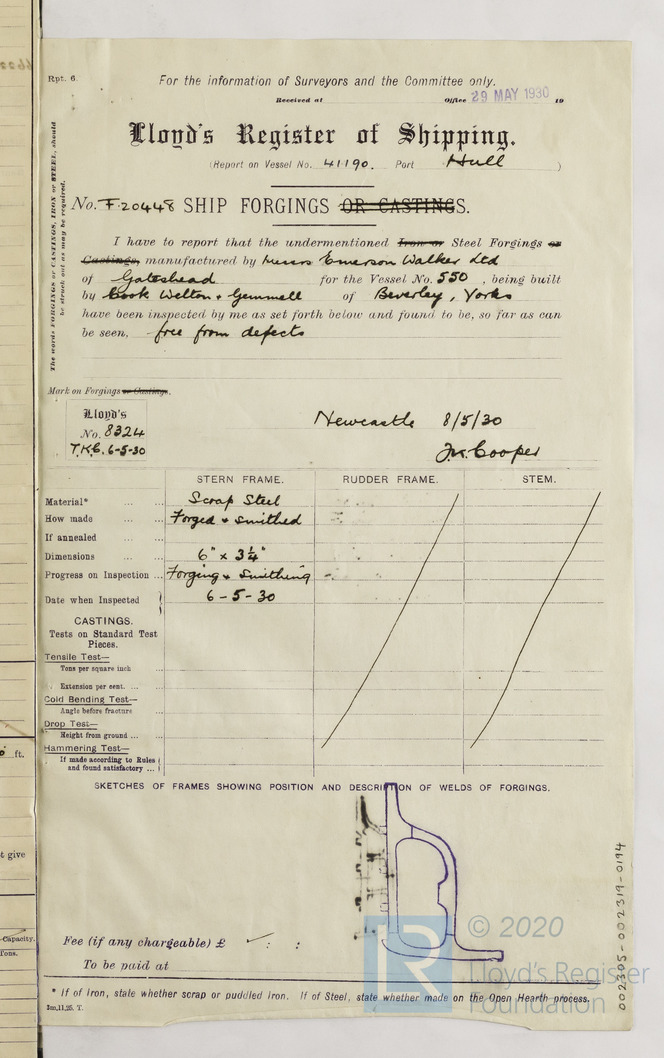 Rpt. 6.
For the information of Surveyors and the Committee only.
Received at Office 29 MAY 1930 19
Lloyd's Register of Shipping.
(Report on Vessel No. 41190. Port Hull )
The words FORGINGS or CASTINGS, IRON or STEEL, should
be struck out as may be required.
No. F.20448 SHIP FORGINGS OR CASTINGS.
I have to report that the undermentioned Iron or Steel Forgings or
Castings, manufactured by Messrs Emerson Walker Ltd
of Gateshead for the Vessel No. 550 , being built
by Cook Welton + Gemmell of Beverley, Yorks
have been inspected by me as set forth below and found to be, so far as can
be seen, free from defects
Mark on Forgings or Castings.
Lloyd's
No. 8324
T.K.C. 6-5-30
Newcastle 8/5/30
J.K. Cooper
STERN FRAME. RUDDER FRAME. STEM.
Material* ... ... Scrap Steel
How made ... ... Forged + smithed
If annealed ... ...
Dimensions ... ... 6" x 3¼"
Progress on Inspection ... Forging + Smithing
Date when Inspected 6-5-30
CASTINGS.
Tests on Standard Test
Pieces.
Tensile Test—
Tons per square inch ...
Extension per cent. ... ...
Cold Bending Test—
Angle before fracture ...
Drop Test—
Height from ground ... ...
Hammering Test—
If made according to Rules
and found satisfactory ...
SKETCHES OF FRAMES SHOWING POSITION AND DESCRIPTION OF WELDS OF FORGINGS.
Fee (if any chargeable) £ : :
To be paid at
* If of Iron, state whether scrap or puddled iron. If of Steel, state whether made on the Open Hearth process.
1m,11,25. T.
002305-002319-0194
ft.
t give
Capacity.
Tons.
LR
© 2020
Lloyd's Register
Foundation